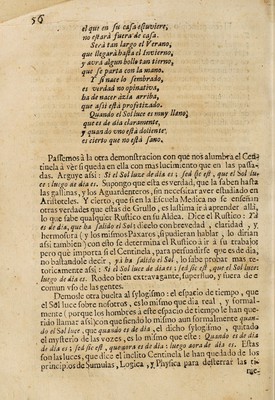 56
el que en su casa estuviere,
no estarà fuera de casa.
Serà tan largo el Verano,
que llegarà hasta el Invierno,
y avrà algun bollo tan tierno,
que se parta con la mano.
Y si nace lo sembrado,
es verdad no opinativa,
ha de nacer àzia arriba,
que assi està profetizado.
Quando el Sol luce es muy lleno,
que es de dia claramente,
y quando uno està doliente,
es cierto que no està sano.
Passemos à la otra demonstracion con que nos alumbra el Centinela
à vèr si queda en ella con mas lucimiento que en las passadas.
Arguye assi: Si el Sol luce de dia es; sed sic est, que el Sol luce:
luego de dia es. Supongo que esta es verdad, que la saben hasta
las gallinas, y los Aguardenteros, sin necessitar aver estudiado en
Aristoteles. Y cierto, que si en la Escuela Medica no se enseñan
otras verdades que estas de Grullo, es lastima ir à aprender allà,
lo que sabe qualquier Rustico en su Aldea. Dice el Rustico: Yà
es de dia, que ha salido el Sol; dicelo con brevedad, claridad, y
hermosura (y los mismos Paxaros, si pudieran hablar, lo dirian
assi tambien) con esto se determina el Rustico à ir à su trabajo;
pero què importa si el Centinela, para persuadirse que es de dia,
no bastandole decir, yà ha salido el Sol, lo sabe probar mas retoricamente
assi: Si el Sol luce de dia es; sed sic est, que el Sol luce:
luego de dia es. Rodeo bien extravagante, superfluo, y fuera de el
comun uso de las gentes.
Demosle otra buelta al sylogismo: el espacio de tiempo, que
el Sol luce sobre nosotros, es lo mismo que dia real, y formalmente
(porque los hombres à este espacio de tiempo le han querido
llamar assi) con que siendo lo mismo aun formalmente quando
el Sol luce, que quando es de dia, el dicho sylogismo, quitado
el mysterio de las voces, es lo mismo que este: Quando es de dia
de dia es; sed sic est, que aora es de dia: luego aora de dia es. Estas
son las luces, que dice el inclito Centinela le han quedado de los
principios de Sumulas, Logica, y Physica para desterrar las ti-